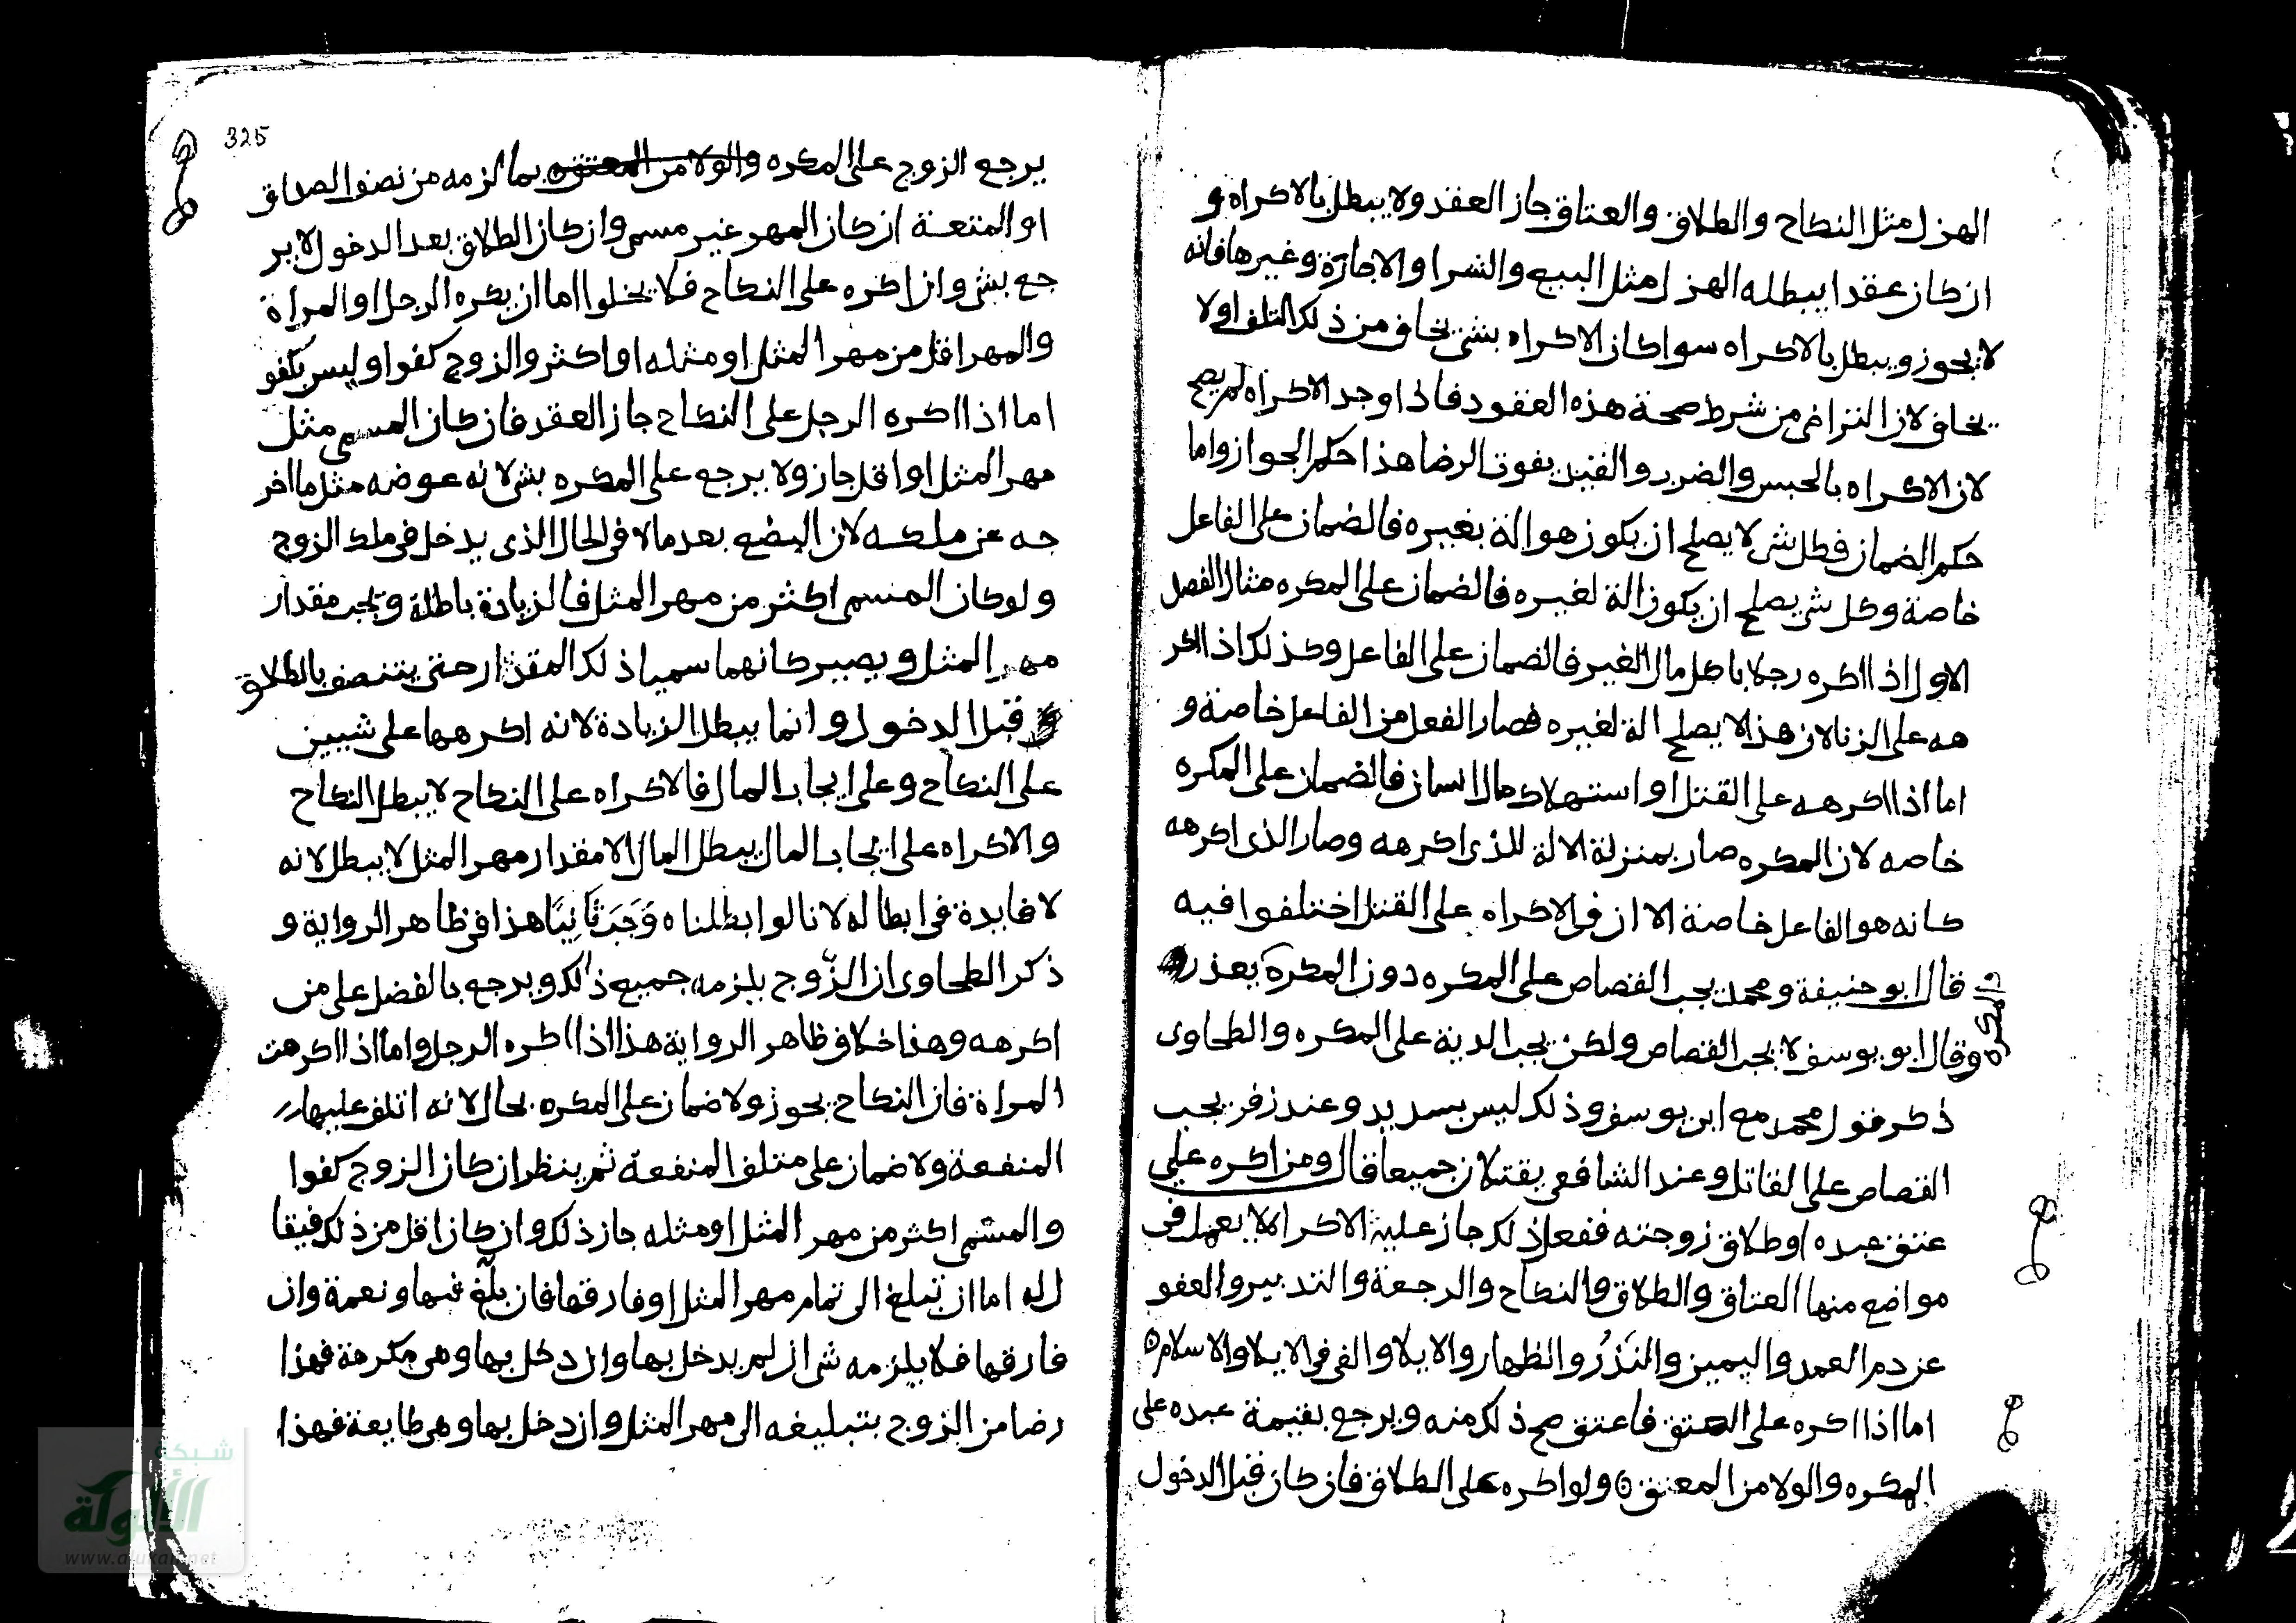 الهزل مثل النكاح والطلاق والعتاق جاز العقد ولا يبطل بالاكراه و
ان كان عقدا يبطله الهزل مثل البيع والشرا والاجارة وغيرها فانه
لا يجوز ويبطل بالاكراه سوا كان الاكراه بشي يخاف من ذلك التلف او لا
يخاف لان التراضي من شرط صحة هذه العقود فاذا وجد الاكراه لم يصح
لان الاكراه بالحبس والضرب والقيد يفوت الرضا هذا حكم الجواز واما
حكم الضمان فكل شي لا يصلح ان يكون هو الة بغيره فالضمان على الفاعل
خاصة وكل شي يصلح ان يكون الة لغيره فالضمان على المكره مثال الفصل
الاول اذا اكره رجلا باكل مال الغير فالضمان على الفاعل وكذلك اذا اكر
هه على الزنا لان هذا لا يصلح الة لغيره فصار الفعل من الفاعل خاصة و
اما اذا اكرهه على القتل او استهلاك مال انسان فالضمان على المكره
خاصه لان المكره صار بمنزلة الالة للذي اكرهه وصار الذي اكرهه
كانه هو الفاعل خاصة الا ان في الاكراه على القتل اختلفوا فيه
قال ابو حنيفة ومحمد يجب القصاص على المكره دون المكره يعذر
وقال ابو يوسف لا يجب القصاص ولكن يجب الدية على المكره والطحاوي
ذكر قول محمد مع ابي يوسف وذلك ليس بسديد وعند زفر يجب
القصاص على القاتل وعند الشافعي يقتلان جميعا قال ومن اكره علي
عتق عبده او طلاق زوجته ففعل ذلك جاز عليه الاكراه لا يعمل في
مواضع منها العتاق والطلاق والنكاح والرجعة والتدبير والعفو
عن دم العمد واليمين والنَذْرُ والظهار والايلا والفي في الايلا والاسلام ه
اما اذا اكره على العتق فاعتق صح ذلك منه ويرجع بقيمة عبده على
المكره والولا من المعتق ه ولو اكره على الطلاق فان كان قبل الدخول
325
يرجع الزوج على المكره والولا من المعتق بما لزمه من نصف الصداق
او المتعة ان كان المهر غير مسمى وان كان الطلاق بعد الدخول لا ير
جع بشي وان اكره على النكاح فلا يخلوا اما ان يكره الرجل او المراة
والمهر اقل من مهر المثل او مثله او اكثر والزوج كفوا وليس بكفو
اما اذا اكره الرجل على النكاح جاز العقد فان كان المسمى مثل
مهر المثل او اقل جاز ولا يرجع على المكره بشي لانه عوضه مثل ما اخر
جه عن ملكه لان البضع يعد مالا في الحال الذي يدخل في ملك الزوج
ولو كان المسمى اكثر من مهر المثل فالزيادة باطلة ويجب مقدار
مهر المثل ويصير كانهما سميا ذلك المقدار حتى يتنصف بالطلاق
قبل الدخول وانما يبطل الزيادة لانه اكرهها على شيين
على النكاح وعلى ايجاب المال فالاكراه على النكاح لا يبطل النكاح
والاكراه على ايجاب المال يبطل المال الا مقدار مهر المثل لا يبطل لانه
لا فايدة في ابطاله لانا لو ابطلناه وَجَبَ ثَانِيًا هذا في ظاهر الرواية و
ذكر الطحاوي ان الزّوج يلزمه جميع ذلك ويرجع بالفضل على من
اكرهه وهذا خلاف ظاهر الرواية هذا اذا اكره الرجل واما اذا اكرهت
المراة فان النكاح يجوز ولا ضمان على المكره بحال لانه اتلف عليها
المنفعة ولا ضمان على متلف المنفعة ثم ينظر ان كان الزوج كفوا
والمسّمى اكثر من مهر المثل او مثله جاز ذلك وان كان اقل من ذلك فيقا
ل له اما ان تبلغ الى تمام مهر المثل او فارقها فان بلّغ فبها ونعمة وان
فارقها فلا يلزمه شي ان لم يدخل بها وان دخل بها وهي مكرهة فهذا
رضا من الزوج بتبليغه الى مهر المثل وان دخل بها وهي طايعة فهذا
شبكة
الألوكة
www.alukah.net